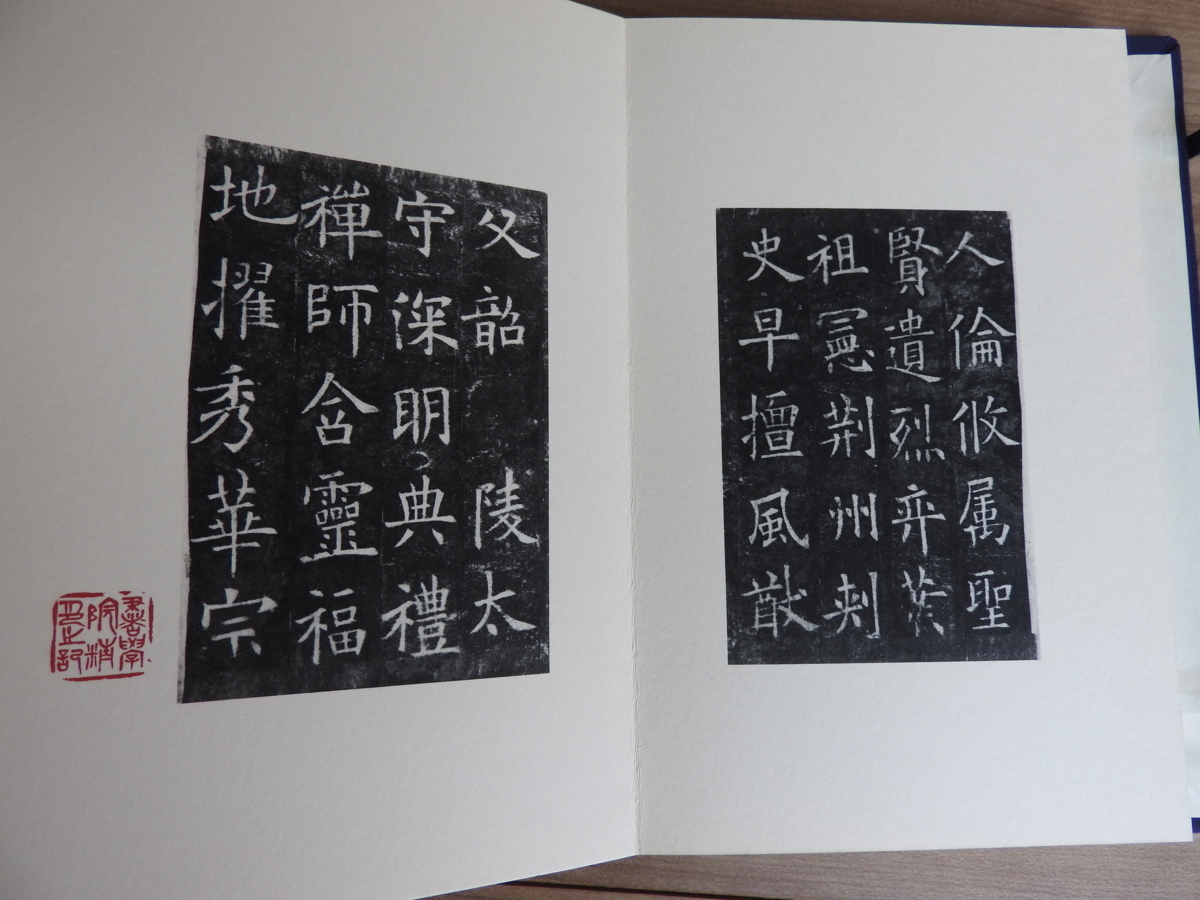 人倫攸属聖
賢遺烈弈葉
祖憲荊州刺
史早擅風猷
父韶 陵太
守深明典禮
禪師含靈福
地擢秀華宗
書學
院精
印記